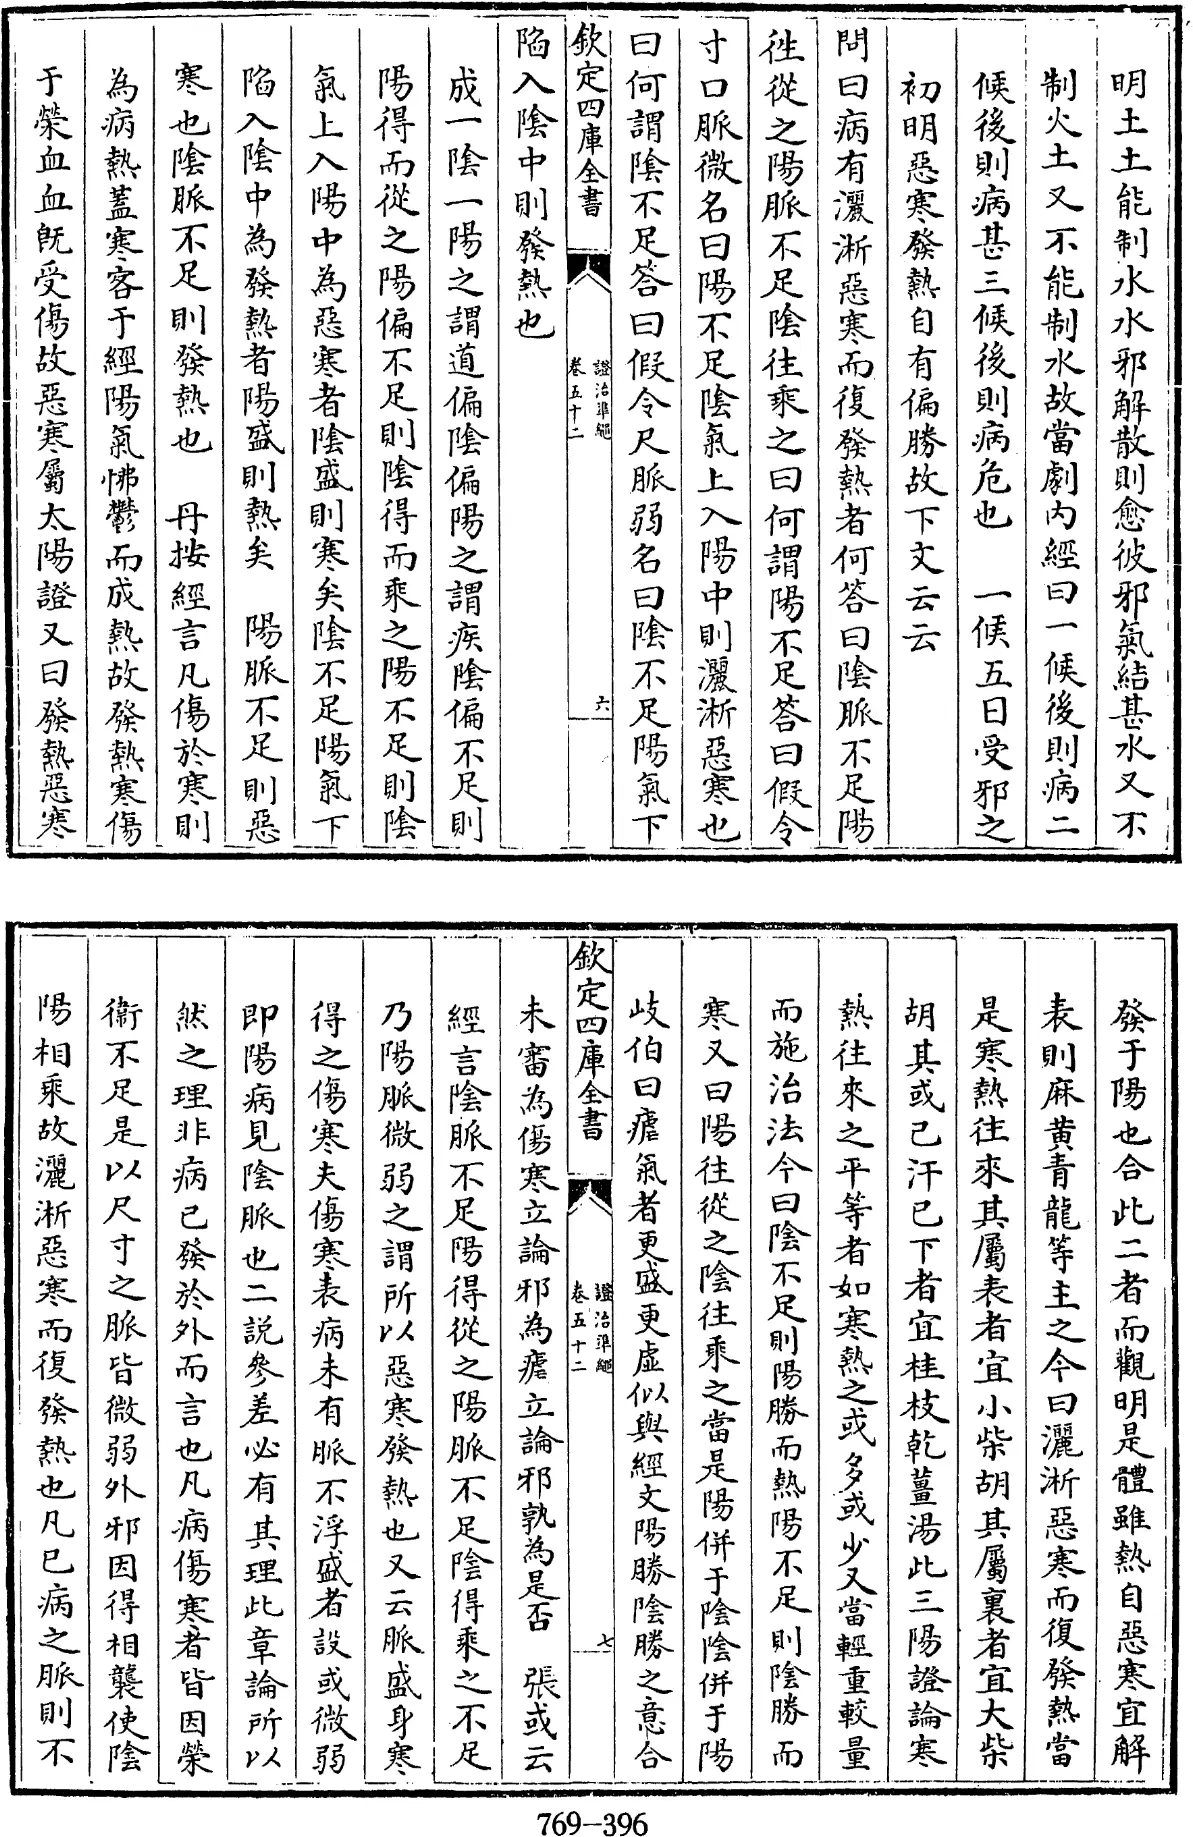 明土土能制水水邪解散則愈彼邪氣結甚水又不
制火土又不能制水故當劇内經曰一候後則病二
候後則病甚三候後則病危也　一候五日受邪之
初明惡寒發熱自有偏勝故下文云云
問曰病有灑淅惡寒而復發熱者何答曰陰脈不足陽
徃從之陽脈不足陰往乘之曰何謂陽不足答曰假令
寸口脈微名曰陽不足陰氣上入陽中則灑淅惡寒也
曰何謂陰不足答曰假令尺脈弱名曰陰不足陽氣下
欽定四庫全書
證治準繩
卷五十二
六
陷入陰中則發熱也
成一陰一陽之謂道偏陰偏陽之謂疾陰偏不足則
陽得而從之陽偏不足則陰得而乘之陽不足則陰
氣上入陽中為惡寒者陰盛則寒矣陰不足陽氣下
陷入陰中為發熱者陽盛則熱矣　陽脈不足則惡
寒也陰脈不足則發熱也　丹按經言凡傷於寒則
為病熱蓋寒客于經陽氣怫鬱而成熱故發熱寒傷
于榮血血既受傷故惡寒屬太陽證又曰發熱惡寒
發于陽也合此二者而觀明是體雖熱自惡寒宜解
表則麻黄青龍等主之今曰灑淅惡寒而復發熱當
是寒熱往來其屬表者宜小柴胡其屬裏者宜大柴
胡其或已汗已下者宜桂枝乾薑湯此三陽證論寒
熱往來之平等者如寒熱之或多或少又當輕重較量
而施治法今曰陰不足則陽勝而熱陽不足則陰勝而
寒又曰陽往從之陰往乘之當是陽併于陰陰併于陽
岐伯曰瘧氣者更盛更虛似與經文陽勝陰勝之意合
欽定四庫全書
證治準繩
卷五十二
七
未審為傷寒立論邪為瘧立論邪孰為是否　張或云
經言陰脈不足陽得從之陽脈不足陰得乘之不足
乃陽脈微弱之謂所以惡寒發熱也又云脈盛身寒
得之傷寒夫傷寒表病未有脈不浮盛者設或微弱
即陽病見陰脈也二説參差必有其理此章論所以
然之理非病已發於外而言也凡病傷寒者皆因榮
衛不足是以尺寸之脈皆微弱外邪因得相襲使陰
陽相乘故灑淅惡寒而復發熱也凡已病之脈則不
769-396